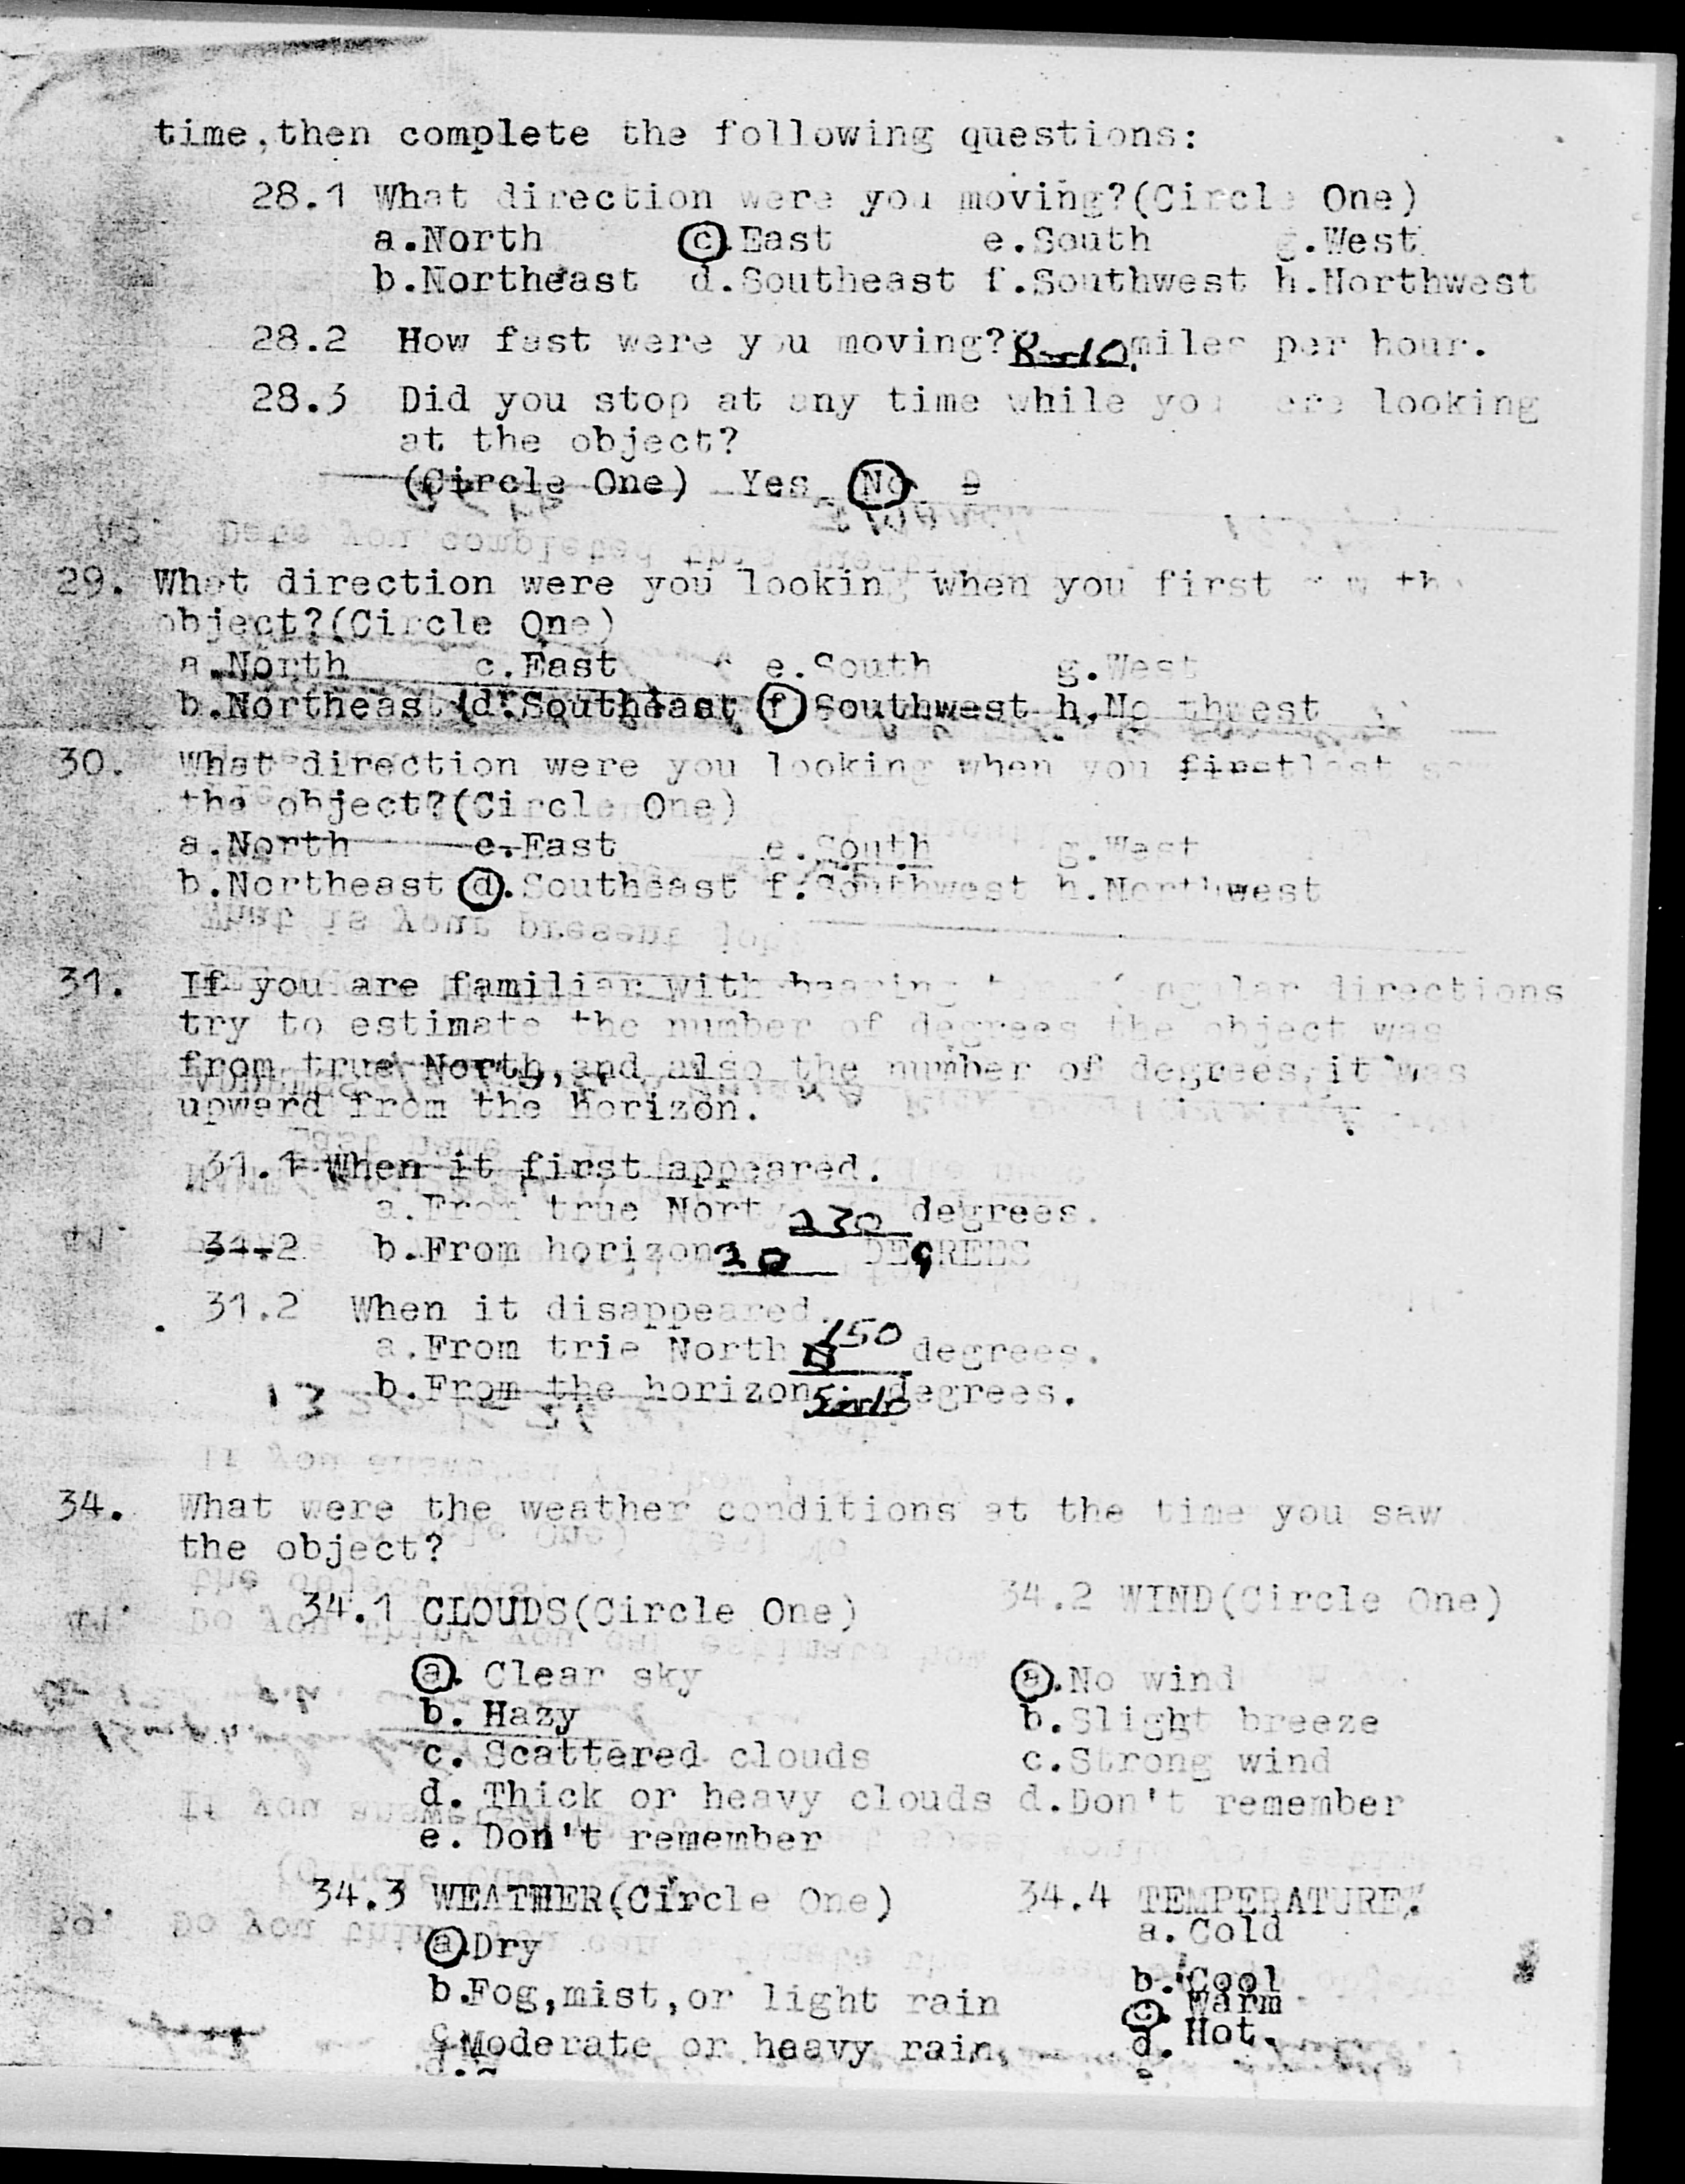 time,then complete the following questions:
28.1 What direction were you moving?(Circle One)
a.North c.East e.South g.West
b.Northeast d.Southeast f.Southwest h.Northwest
28.2 How fast were you moving? 8-10 miles per hour.
28.3 Did you stop at any time while you were looking
at the object?
(Circle One) Yes No
29. What direction were you looking when you first saw the
object?(Circle One)
a.North c.East e.South g.West
b.Northeast d.Southeast f Southwest h.No thwest
30. What direction were you looking when you first last saw
the object?(Circle One)
a.North c.East e.South g.West
b.Northeast d.Southeast f.Southwest h.Northwest
31. If you are familiar with bearing angular directions
try to estimate the number of degrees the object was
from true North,and also the number of degrees,it was
upward from the horizon.
31.1 When it first appeared.
a.From true North 230 degrees.
31.2 b.From horizon 20 DEGREES
31.2 When it disappeared.
a.From trie North 150 degrees.
b.From the horizon degrees.
34. What were the weather conditions at the time you saw
the object?
34.1 CLOUDS(Circle One) 34.2 WIND(Circle One)
a. Clear sky a.No wind
b. Hazy b.Slight breeze
c. Scattered clouds c.Strong wind
d. Thick or heavy clouds d.Don't remember
e. Don't remember
34.3 WEATHER(Circle One) 34.4 TEMPERATURE
a.Dry a.Cold
b.Fog,mist,or light rain b.Cool
c. Warm
c.Moderate or heavy rain d. Hot.
d.